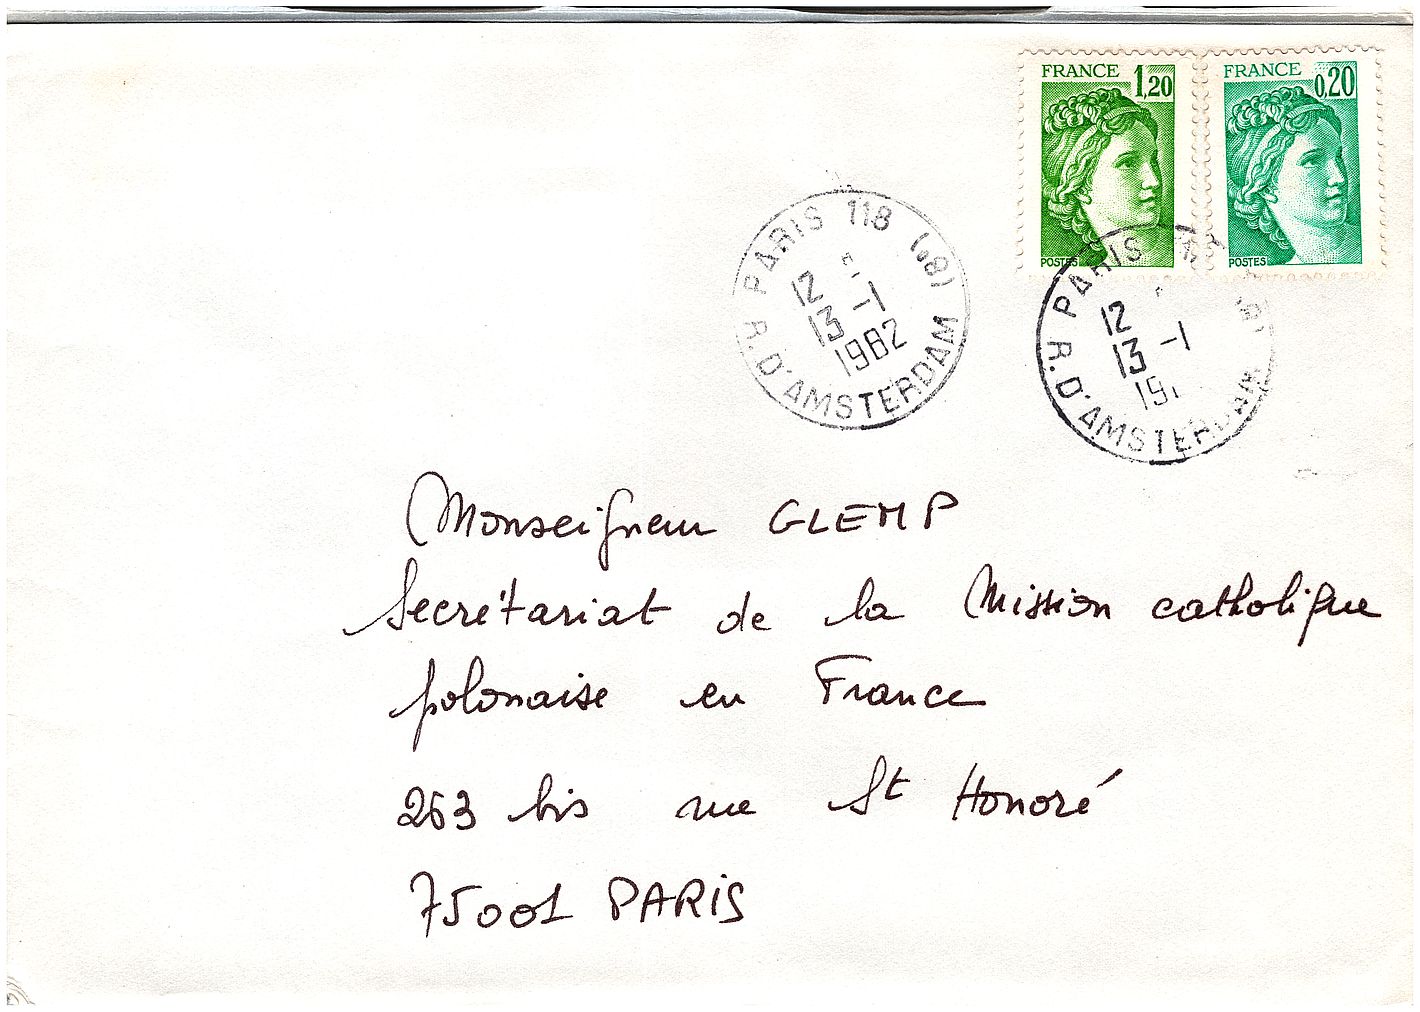 FRANCE 1,20
POSTES
FRANCE 0,20
POSTES
PARIS 118 (08)
12
13 -1
1982
R. D'AMSTERDAM
PARIS
12
13 -1
19
R. D'AMSTERDAM
Monseigneur GLEMP
Secrétariat de la Mission catholique
polonaise en France
263 bis rue St Honoré
75001 PARIS